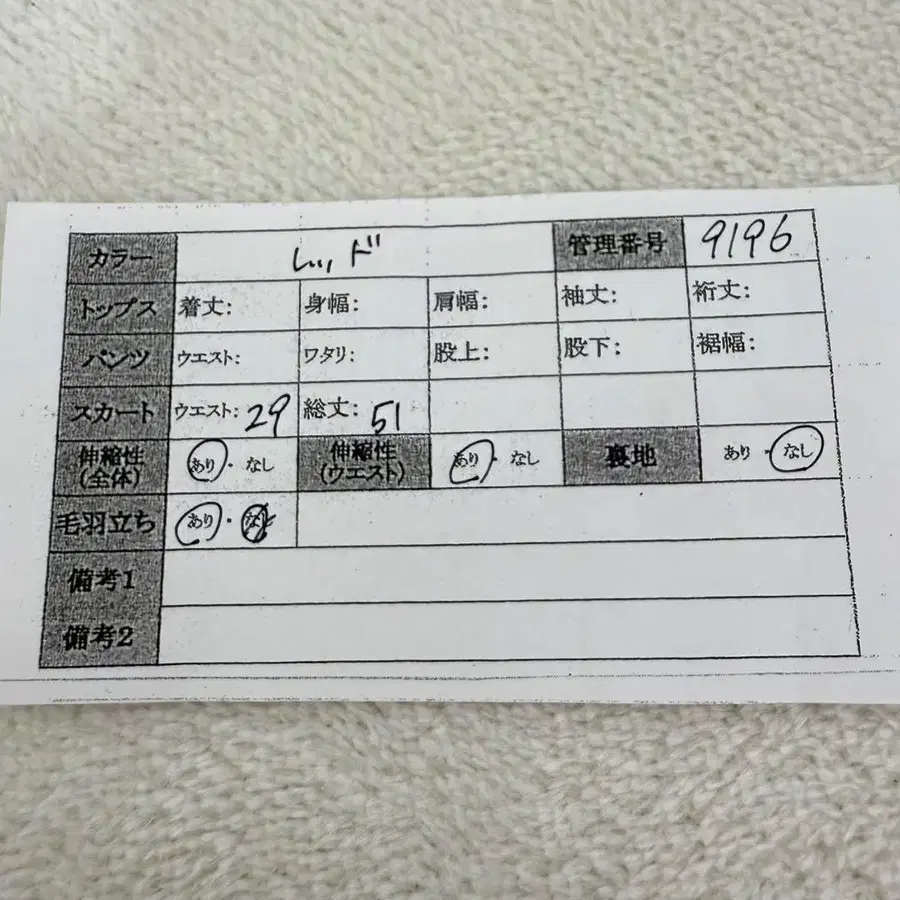 カラー レッド 管理番号 9196
トップス 着丈: 身幅: 肩幅: 袖丈: 裄丈:
パンツ ウエスト: ワタリ: 股上: 股下: 裾幅:
スカート ウエスト: 29 総丈: 51
伸縮性(全体) あり・なし 伸縮性(ウエスト) あり・なし 裏地 あり・なし
毛羽立ち あり・なし
備考1
備考2